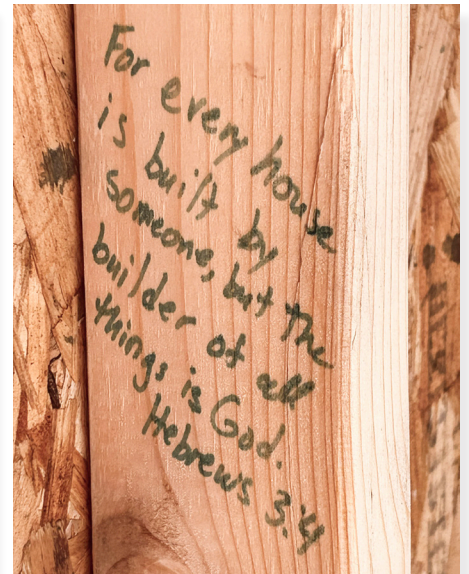 For every house
is built by
someone, but the
builder of all
things is God.
Hebrews 3:4